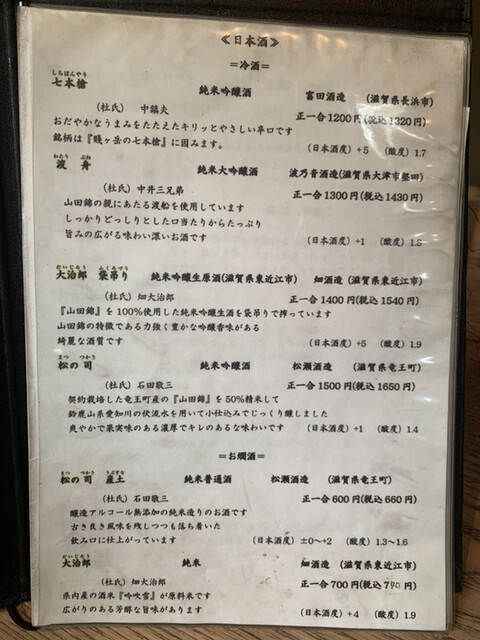 ≪日本酒≫
＝冷酒＝
しちほんやり
七本槍 純米吟醸酒 富田酒造 (滋賀県長浜市)
(杜氏) 中鎮夫 正一合1200円(税込1320円)
おだやかなうまみをたたえたキリッとやさしい辛口です
銘柄は『賤ヶ岳の七本槍』に因みます。 (日本酒度) +5 (酸度) 1.7
わたり ぶね
渡 舟 純米大吟醸酒 波乃音酒造(滋賀県大津市堅田)
(杜氏) 中井三兄弟 正一合1300円(税込1430円)
山田錦の親にあたる渡船を使用しています
しっかりどっしりとした口当たりからたっぷり
旨みの広がる味わい深いお酒です (日本酒度) +1 (酸度)
だいじろう ふくろづり
大治郎 袋吊り 純米吟醸生原酒(滋賀県東近江市) 畑酒造 (滋賀県東近江市)
(杜氏) 畑大治郎 正一合1400円(税込1540円)
『山田錦』を100%使用した純米吟醸生酒を袋吊りで搾っています
山田錦の特徴である力強く豊かな吟醸香味がある
綺麗な酒質です (日本酒度) +5 (酸度) 1.9
まつ つかさ
松の司 純米吟醸酒 松瀬酒造 (滋賀県竜王町)
(杜氏) 石田敬三 正一合1500円(税込1650円)
契約栽培した竜王町産の『山田錦』を50%精米して
鈴鹿山系愛知川の伏流水を用いて小仕込みでじっくり醸しました
爽やかで果実味のある濃厚でキレのあるな味わいです (日本酒度) +1 (酸度) 1.4
＝お燗酒＝
まつ つかさ うぶすな
松の司 産土 純米普通酒 松瀬酒造 (滋賀県竜王町)
(杜氏) 石田敬三 正一合600円(税込660円)
醸造アルコール無添加の純米造りのお酒です
古き良き風味を残しつつも落ち着いた
飲み口に仕上がっています (日本酒度) ±0〜+2 (酸度) 1.3〜1.6
だいじろう
大治郎 純米 畑酒造 (滋賀県東近江市)
(杜氏) 畑大治郎 正一合700円(税込770円)
県内産の酒米『吟吹雪』が原料米です
広がりのある芳醇な旨味があります (日本酒度) +4 (酸度) 1.9